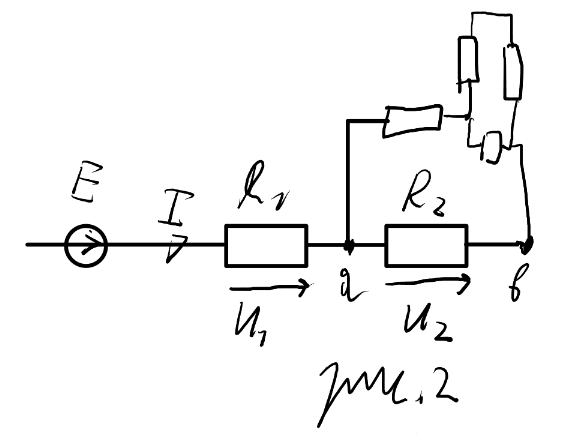 E
I
R₁
R₂
a
в
U₁
U₂
рис. 2